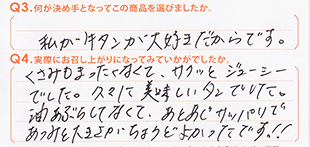 Q3.何が決め手となってこの商品を選びましたか。
私が牛タンが大好きだからです。
Q4.実際にお召し上がりになってみていかがでしたか。
くさみもまったくなくて、サクッとジューシー
でした。久々に美味しいタンでした。
油あぶらしてなくて、あとあじサッパリで
あつみと大きさがちょうどよかったです!!